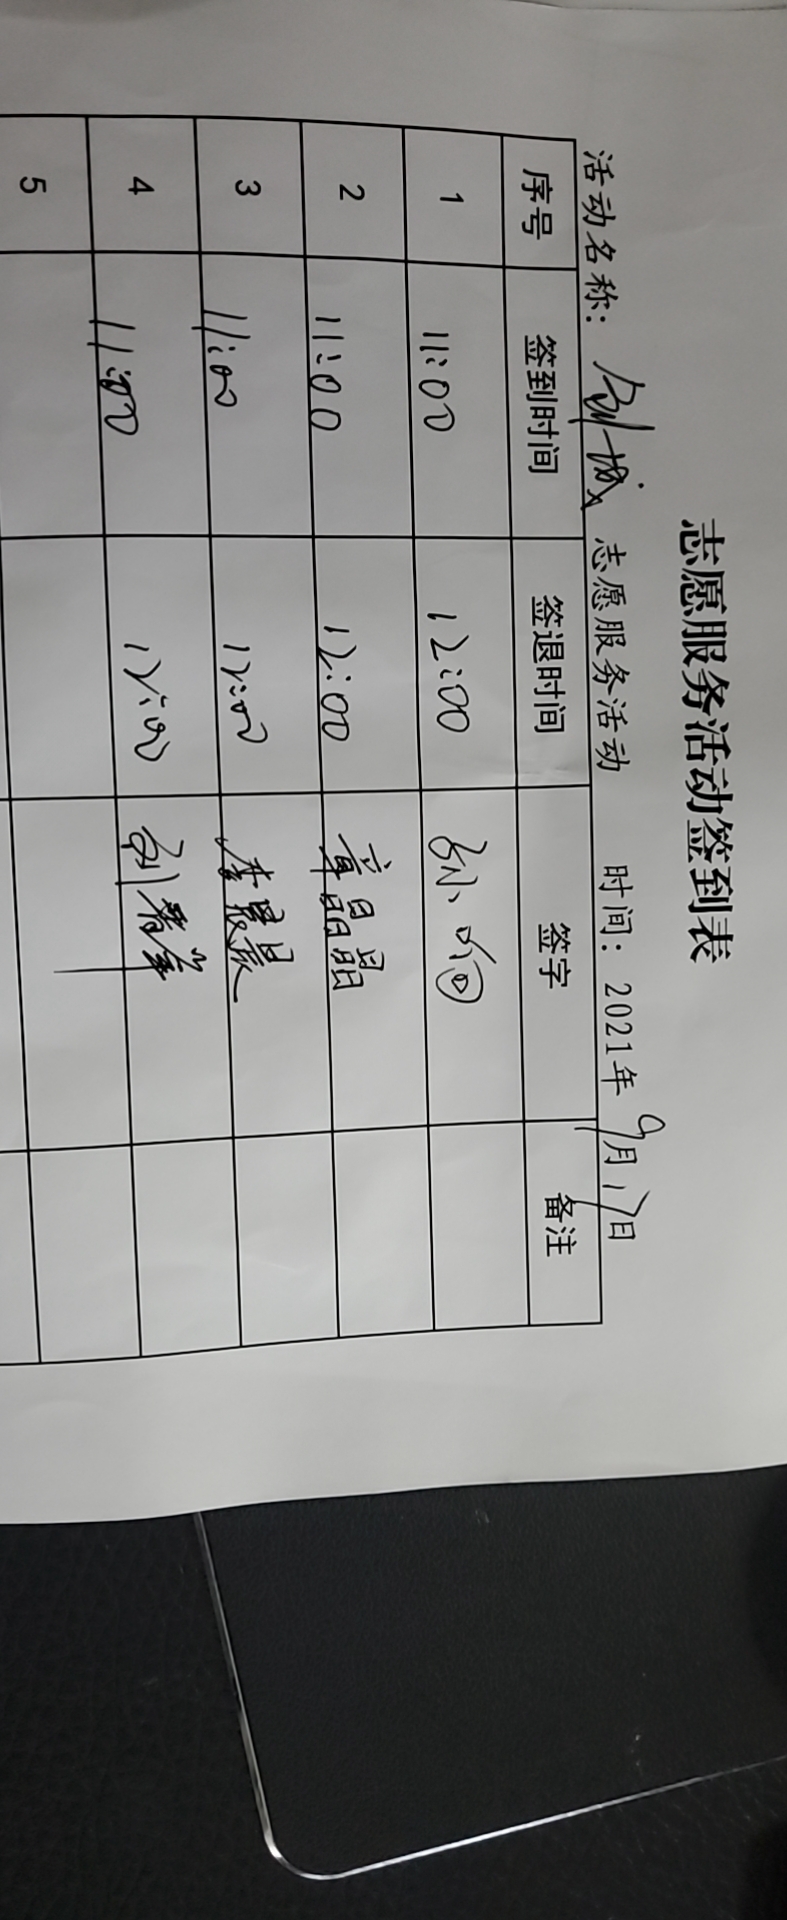 志愿服务活动签到表
活动名称: 创城 志愿服务活动 时间: 2021年 9月17日
序号 签到时间 签退时间 签字 备注
1 11:00 12:00 孙
2 11:00 12:00 章晶晶
3 11:00 12:00 李晨晨
4 11:00 12:00 刘春
5